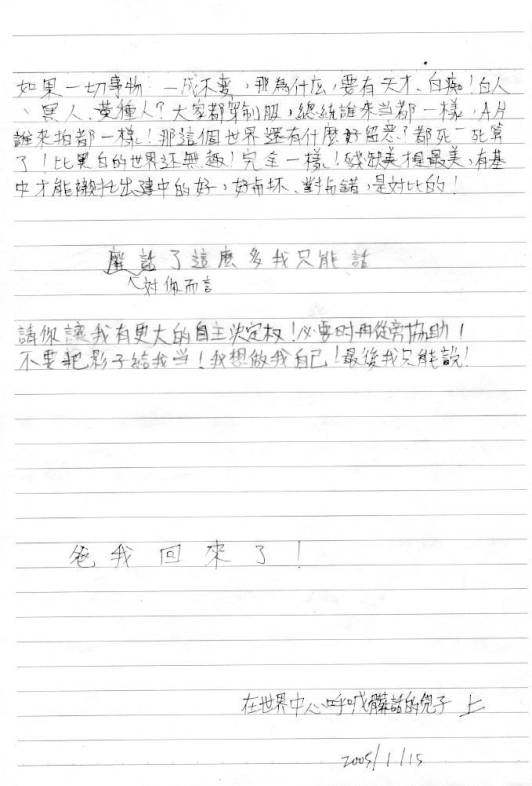 如果一切事物 一成不變,那為什么,要有天才、白痴!白人
、黑人、黃種人?大家都穿制服,總統誰來当都一樣,A片
誰來拍都一樣!那這個世界還有什麼好留恋?都死一死算
了!比黑白的世界还無趣!完全一樣!殘缺美才是最美,有基
中才能襯托出建中的好,好與坏、對與錯,是对比的!
廢話了這麼多我只能話
對你而言
請你讓我有更大的自主決定权!必要时再從旁協助!
不要把影子給我当!我想做我自己!最後我只能說!
爸我回來了!
在世界中心呼喊髒話的兒子 上
2005/1/15